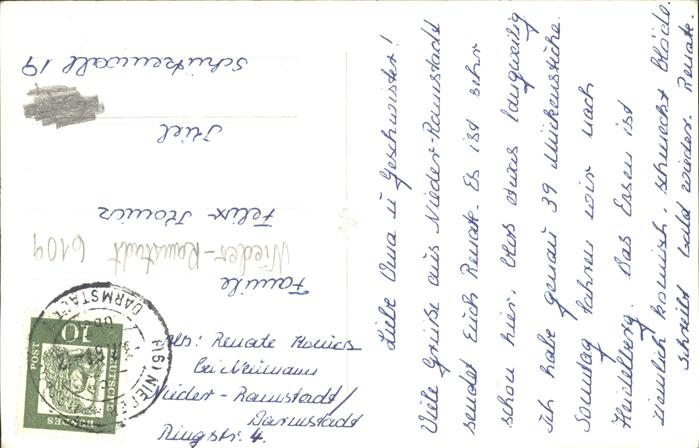 Liebe Oma u Geschwister!
Viele Grüße aus Nieder-Ramstadt
sendet Euch Renate. Es ist sehr
schön hier, blos etwas langweilig
ich habe genau 39 Mückenstiche.
Sonntag fahren wir nach
Heidelberg. Das Essen ist
ziemlich komisch, schmeckt blöde.
schreibt bald wieder. Renate.
Familie
Felix
Kiel
Schützenwall 19
Nieder-Ramstadt 6109
Abs: Renate
bei Neumann
Nieder-Ramstadt/
Darmstadt
Ringstr. 4.
(16) NIEDER-
DARMSTADT
10
POST
DEUTSCHE
BUNDES